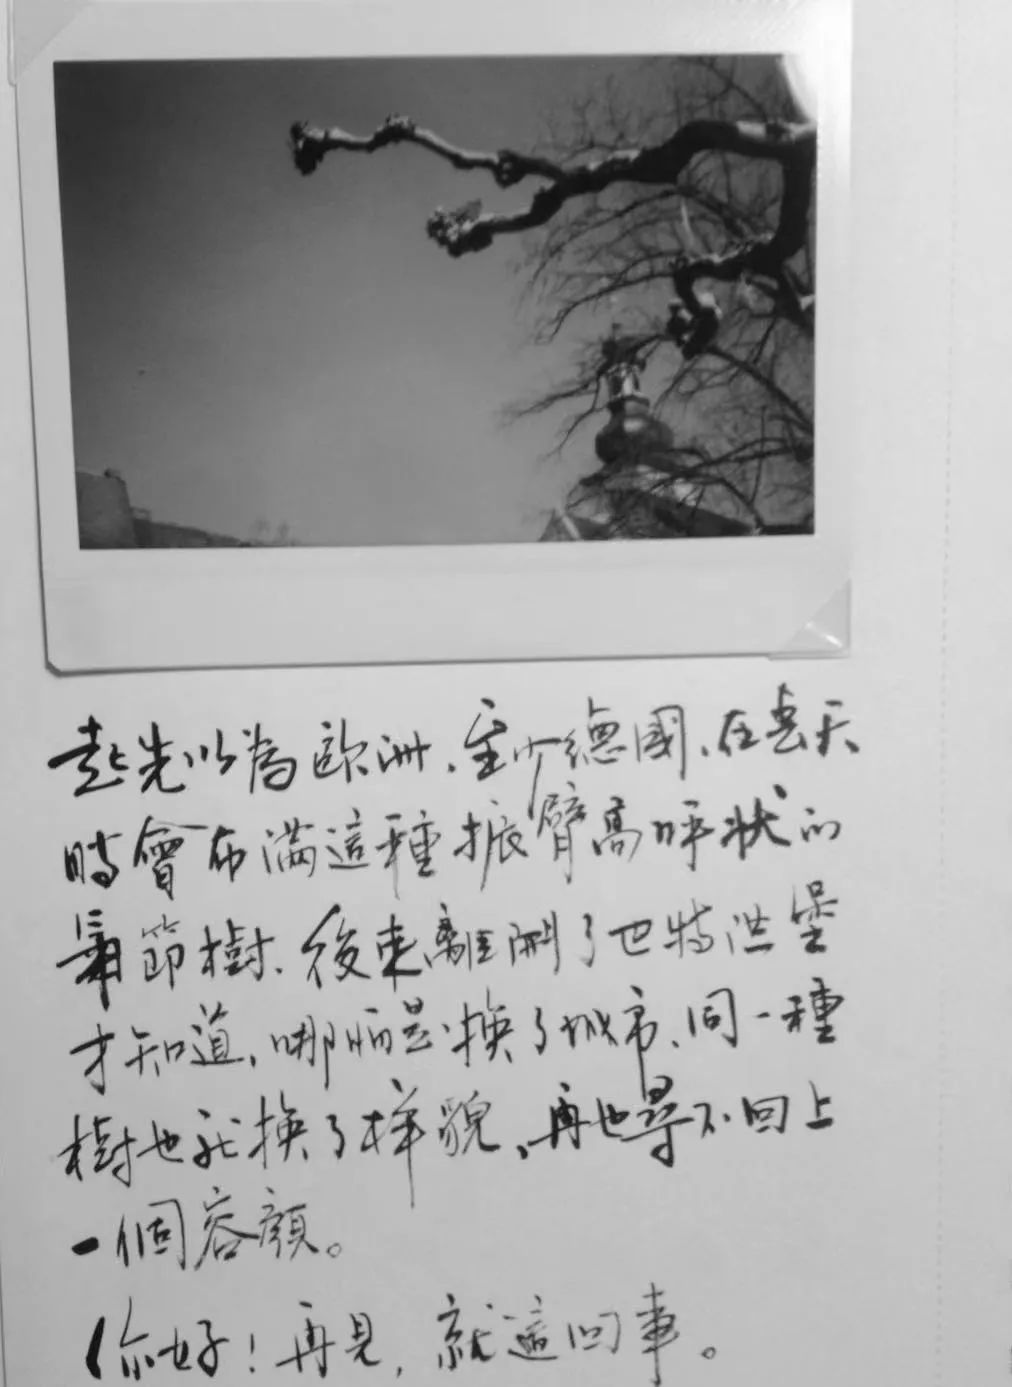 起先以為歐洲、至少德國、在春天
時會布滿這種振臂高呼狀的
節樹、後來離開了巴特洪堡
才知道、哪怕是換了城市、同一種
樹也就換了樣貌、再也尋不回上
一個容顏。
你好！再見，就這回事。